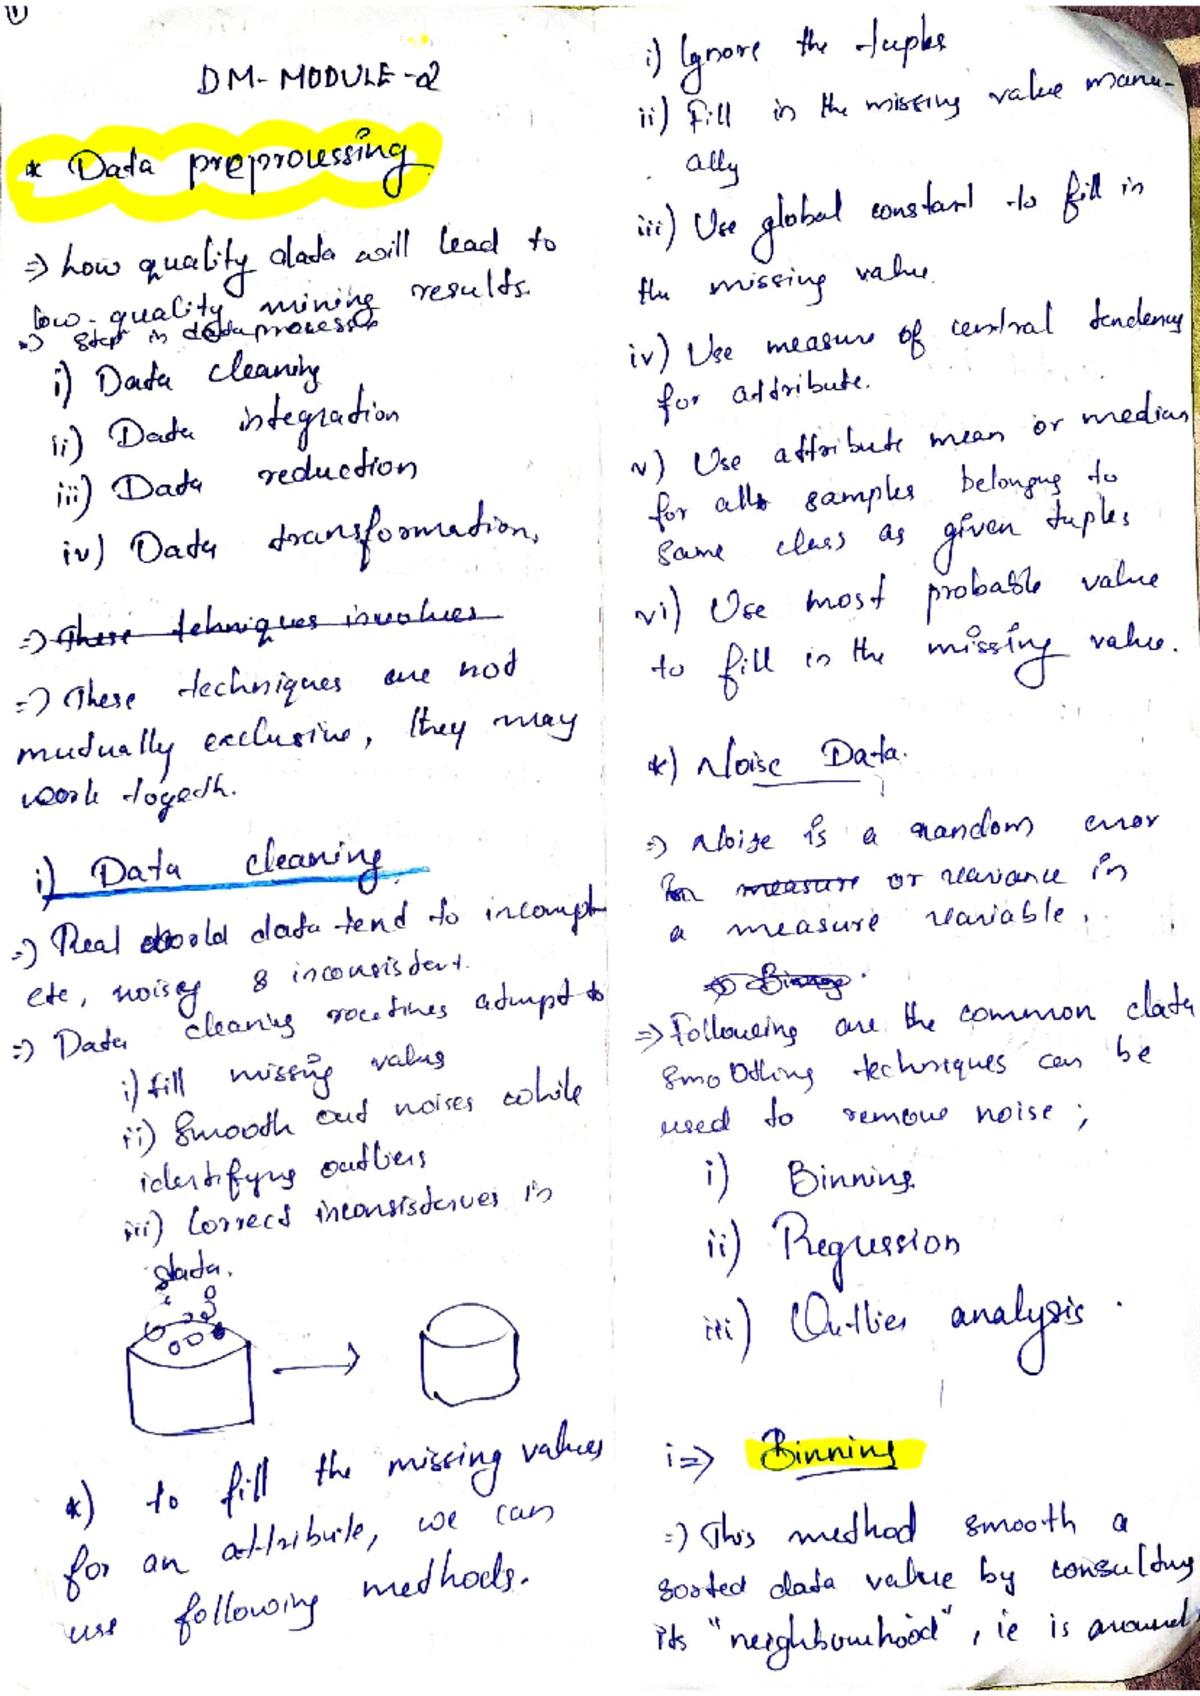 DM- MODULE -02
* Data preprocessing
=> Low quality data will lead to
low-quality mining results.
=> Step in data process
i) Data cleaning
ii) Data integration
iii) Data reduction
iv) Data transformation,
=> These tehniques involves
=> These techniques are not
mutually exclusive, they may
work togeth.
i) Data cleaning
=> Real world data tend to incompl
ete, noisy & inconsistent.
=> Data cleaning routines attempt to
i) fill missing values
ii) Smooth out noises while
identifying outliers
iii) Correct inconsistencies in
data.
*) to fill the missing values
for an attribute, we can
use following methods.
i) Ignore the tuples
ii) Fill in the missing value manu-
ally
iii) Use global constant to fill in
the missing value.
iv) Use measure of central tendency
for attribute.
v) Use attribute mean or median
for all samples belonging to
same class as given tuples
vi) Use most probable value
to fill in the missing value.
*) Noise Data.
=> Noise is a random error
measure or variance in
a measure variable.
Binning
=> Following are the common data
smoothing techniques can be
used to remove noise;
i) Binning.
ii) Regression
iii) Outlier analysis.
i => Binning
=> This method smooth a
sorted data value by consulting
its "neighbourhood", ie is around